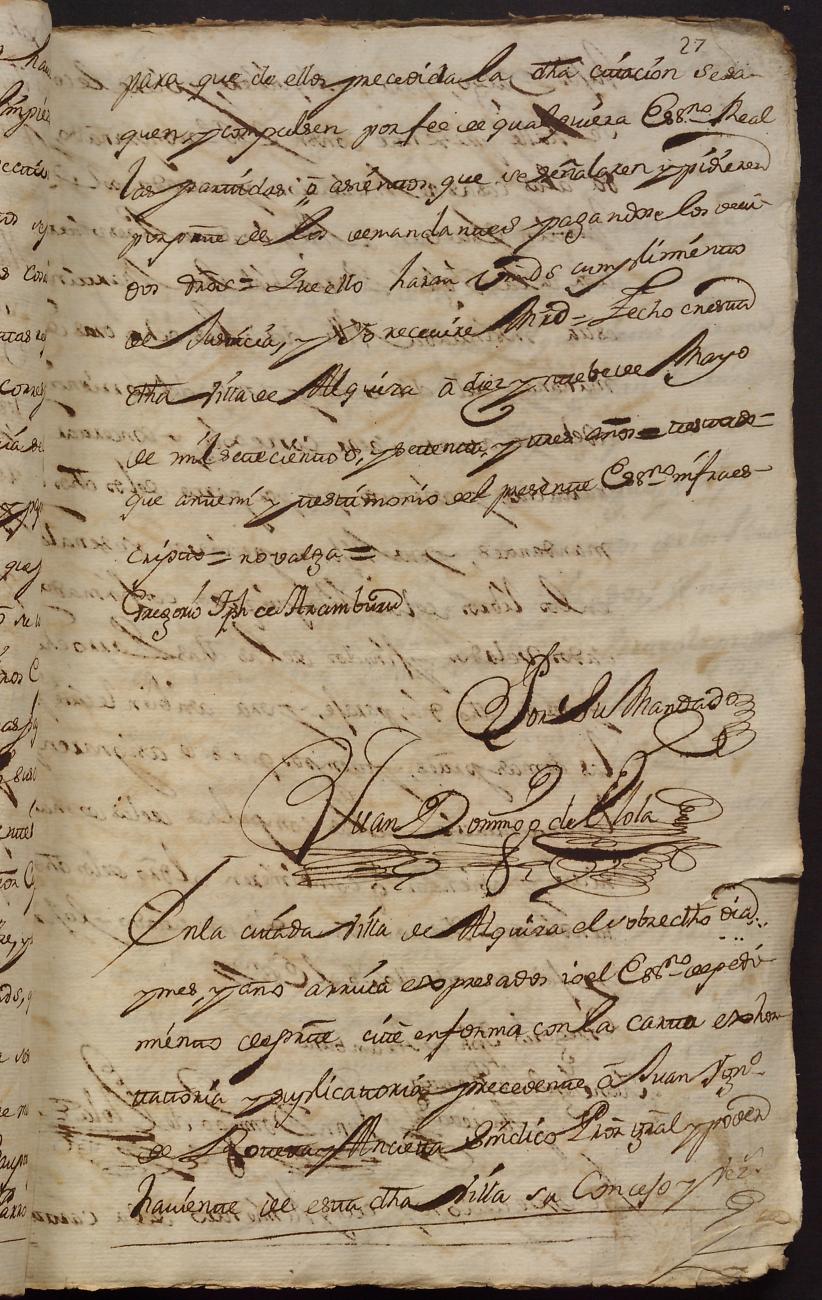 27
para que de ellos precedida la dha citacion se sa
quen, y compulsen por fee de qualquiera Essno Real
las partidas, ō asientos que se señalaren y pidieren
por parte de los demandantes pagandose los devi
dos dros = Que ello harán Vmds cumplimiento
de Justicia, y Yo receuire Mrd = Fecho en esta
dha Villa de Alquiza á diez y nuebe de Mayo
de mil setecientos, y setenta, y tres años = testado =
que ante mi y testimonio del presente Essno infraes
cripto = no valga =
Gregorio Jph de Aramburu
Por Su Mandado
Juan Domingo de Olola
En la citada Villa de Alquiza el sobre dho dia
y mes, y año arriva expresados io el Essno de pedi
mento de parte, cité en forma con la carta exhor
tatoria y suplicatoria precedente á Juan Igno
de Lovera y Ancieta Sindico Pror gral y poder
haviente de esta dha Villa su Concejo y Vez.